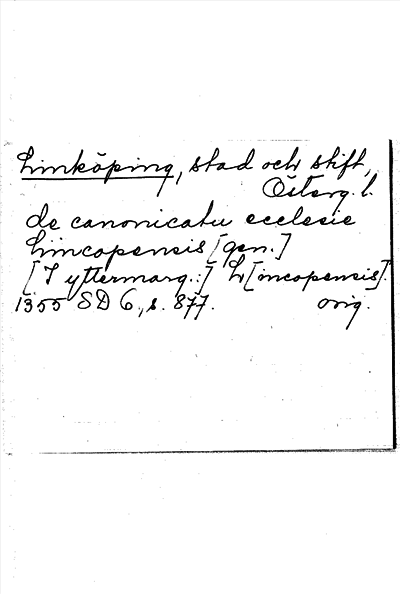 Linköping, stad och stift,
Österg. l.
de canonicatu ecclesie
Lincopensis [gen.]
[I yttermarg.:] L[incopensis].
1355 SD 6, s. 877. orig.